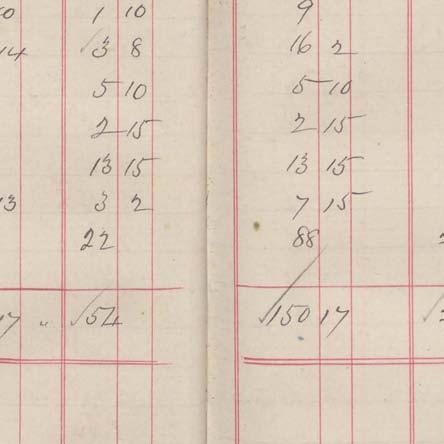 1 10 9
14 √3 8 16 2
5 10 5 10
2 15 2 15
13 15 13 15
13 3 2 7 15
22 88
17 " √54 √150 17